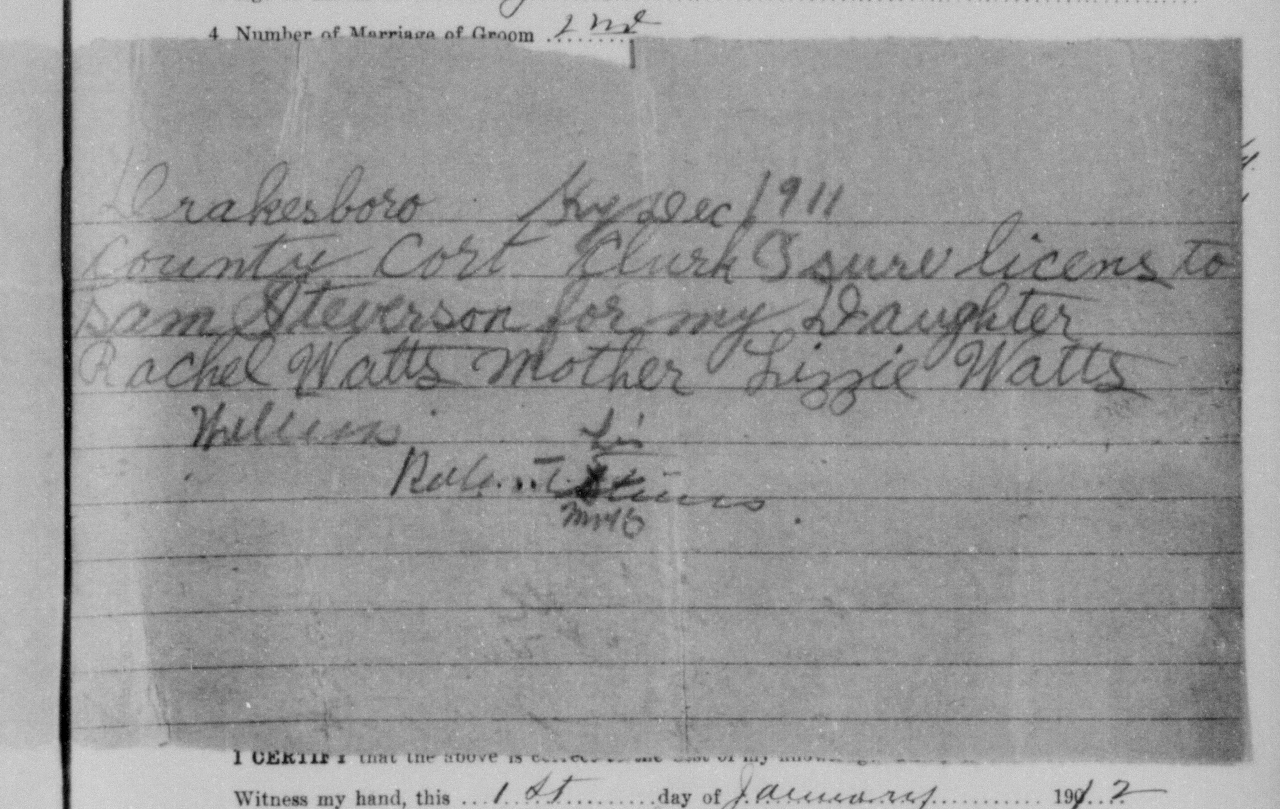 4 Number of Marriage of Groom 2nd
Drakesboro Ky Dec 1911
County Cort Clurk Isure licens to
Sam Steverson for my Daughter
Rachel Watts Mother Lizzie Watts
his
I CERTIFY that the above is correct to the best of my
Witness my hand, this 1st day of January 1912